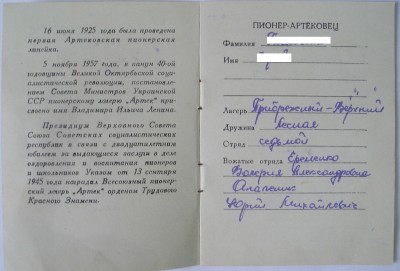 16 июня 1925 года была проведена
первая Артековская пионерская
линейка.
5 ноября 1957 года, в канун 40-ой
годовщины Великой Октябрьской социа-
листической революции, постановле-
нием Совета Министров Украинской
ССР пионерскому лагерю „Артек" при-
своено имя Владимира Ильича Ленина.
Президиум Верховного Совета
Союза Советских социалистических
республик в связи с двадцатилетним
юбилеем за выдающиеся заслуги в деле
оздоровления и воспитания пионеров
и школьников Указом от 13 сентября
1945 года наградил Всесоюзный пионер-
ский лагерь „Артек" орденом Трудового
Красного Знамени.
ПИОНЕР-АРТЕКОВЕЦ
Фамилия
Имя
Лагерь Прибрежный
Дружина Лесная
Отряд седьмой
Вожатые отряда Еременко
Валерия Александровна
Юрий Михайлович